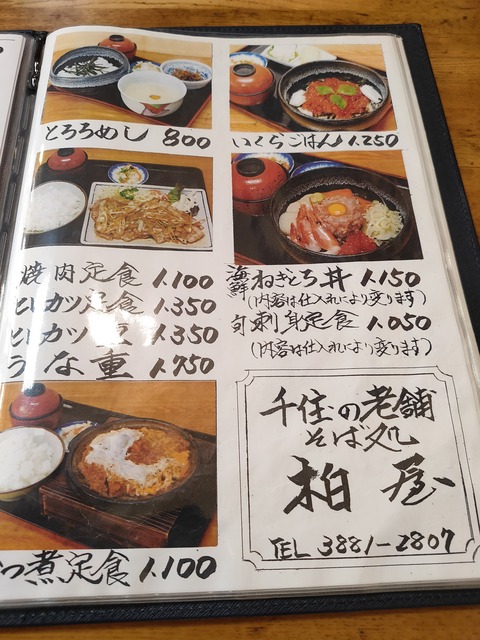 とろろめし 800
焼肉定食 1.100
ヒレカツ定食 1.350
ヒレカツ重 1.350
うな重 1.750
つ煮定食 1.100
いくらごはん 1.250
海鮮ねぎとろ丼 1.150
(内容は仕入れにより変ります)
旬刺身定食 1.050
(内容は仕入れにより変ります)
千住の老舗
そば処
柏屋
TEL 3881-2807